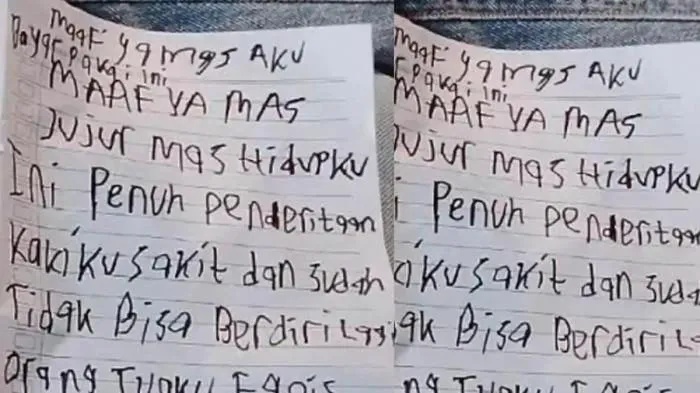 maaf ya mas AKU
Bayar pakai ini
MAAF YA MAS
JUJUR mas HidupKU
Ini Penuh penderitaan
KakiKU Sakit dan Sudah
Tidak Bisa Berdiri Lagi
Orang TUAKU Egois
maaf ya mas AKU
r pakai ini
MAAF YA MAS
UJUR mas HidupKU
i Penuh penderitaan
KU Sakit dan Suda
ak Bisa Berdiri La
ng TUAKU Egois